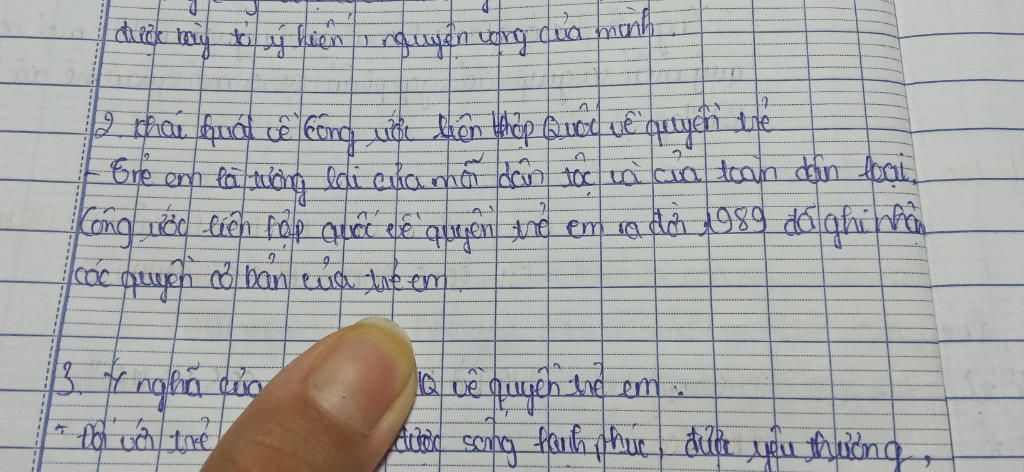 được bày tỏ ý kiến, nguyện vọng của mình
2. Khái quát về công ước liên hợp quốc về quyền trẻ
- Trẻ em là tương lai của mỗi dân tộc và của toàn dân loại.
Công ước liên hợp quốc về quyền trẻ em ra đời 1989 đã ghi nhận
các quyền cơ bản của trẻ em.
3. Ý nghĩa của Q về quyền trẻ em:
- Đối với trẻ được sống hạnh phúc, được yêu thương,